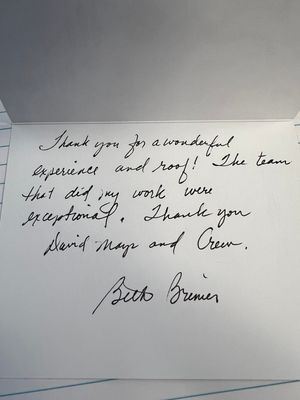 Thank you for a wonderful
experience and roof! The team
that did my work were
exceptional. Thank you
David Mays and Crew.
Beth Bremer